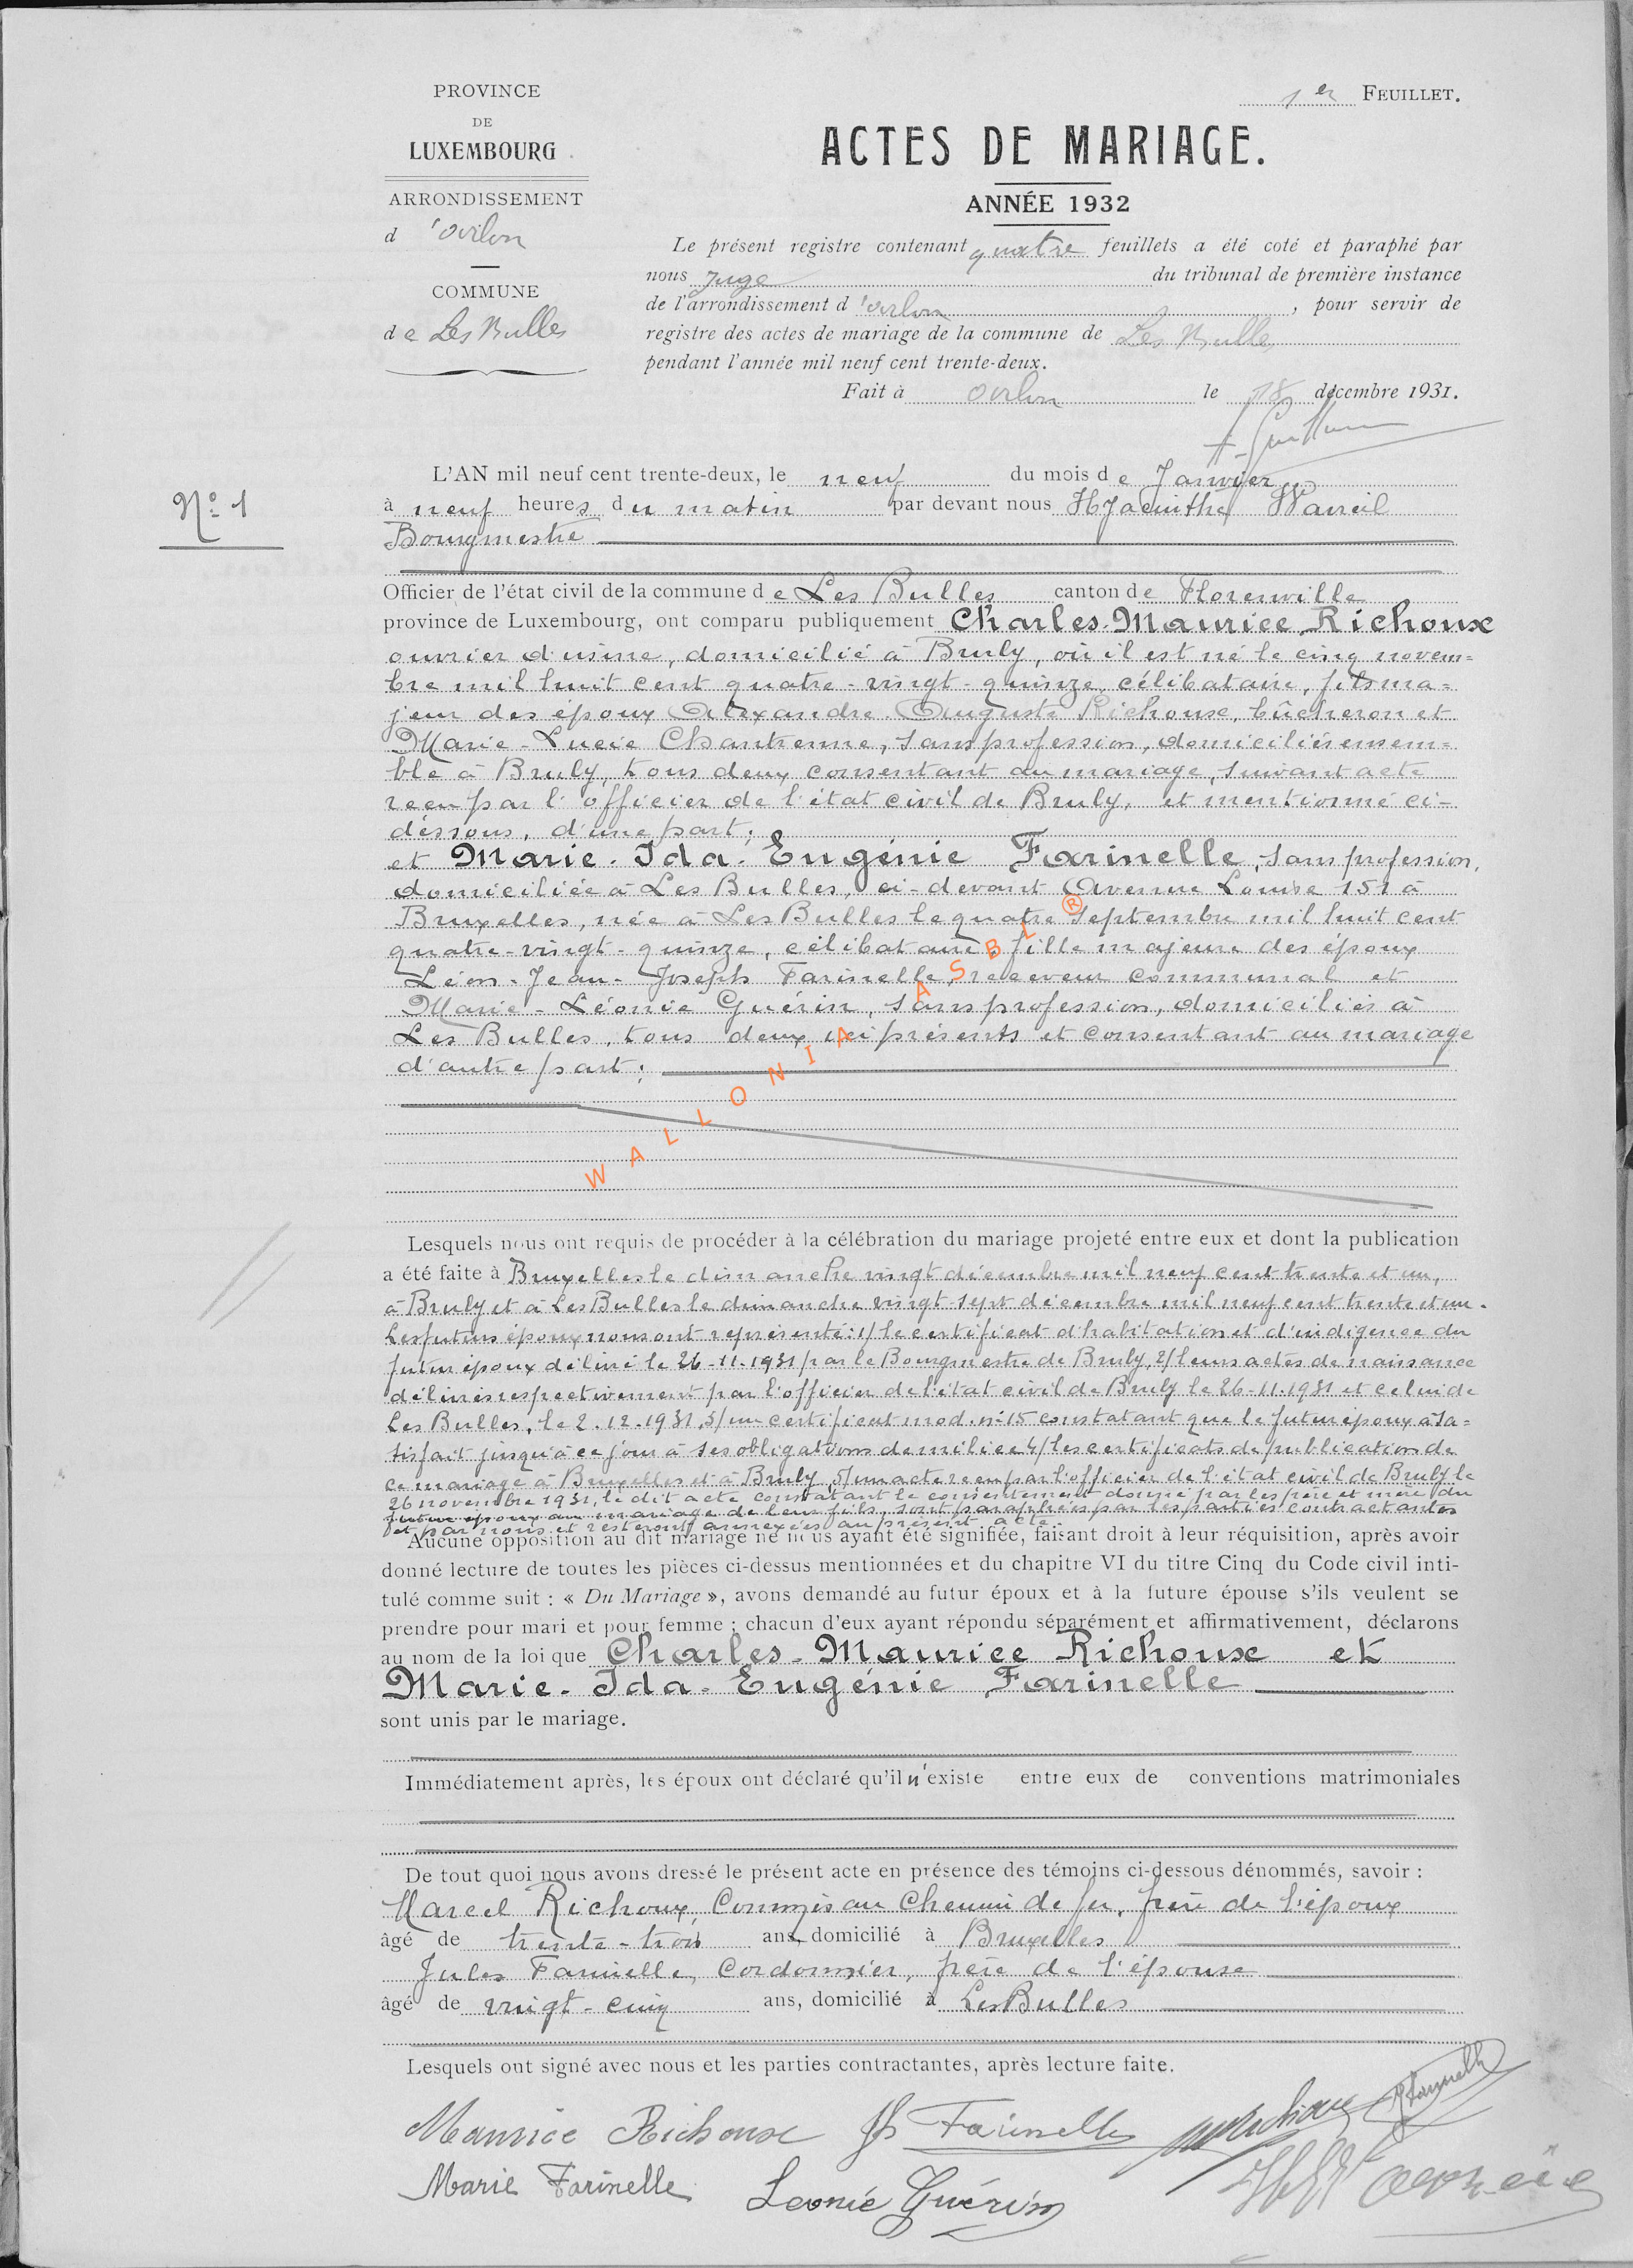 PROVINCE
DE
LUXEMBOURG
ARRONDISSEMENT
d 'Arlon
COMMUNE
de Les Bulles
1er FEUILLET.
ACTES DE MARIAGE.
ANNÉE 1932
Le présent registre contenant quatre feuillets a été coté et paraphé par
nous Juge du tribunal de première instance
de l'arrondissement d 'Arlon, pour servir de
registre des actes de mariage de la commune de Les Bulles
pendant l'année mil neuf cent trente-deux.
Fait à Arlon le 18 décembre 1931.
No 1
L'AN mil neuf cent trente-deux, le neuf du mois de Janvier
à neuf heures du matin par devant nous Hyacinthe
Bourgmestre
Officier de l'état civil de la commune de Les Bulles canton de Florenville
province de Luxembourg, ont comparu publiquement Charles-Maurice Richoux
ouvrier d'usine, domicilié à Bruly, où il est né le cinq novem=
bre mil huit cent quatre-vingt-quinze, célibataire, fils ma=
jeur des époux Alexandre-Auguste Richoux, bûcheron et
Marie-Lucie Chantrenne, sans profession, domiciliés ensem=
ble à Bruly, tous deux consentant au mariage, suivant acte
reçu par l'officier de l'état civil de Bruly, et mentionné ci-
dessous, d'une part;
et Marie-Ida-Eugénie Farinelle, sans profession,
domiciliée à Les Bulles, ci-devant Avenue Louise 151 à
Bruxelles, née à Les Bulles le quatre Septembre mil huit cent
quatre-vingt-quinze, célibataire, fille majeure des époux
Léon-Jean-Joseph Farinelle, receveur communal et
Marie-Léonie Guérin, sans profession, domiciliés à
Les Bulles, tous deux ici présents et consentant au mariage
d'autre part;
WALLONIA ASBL ®
Lesquels nous ont requis de procéder à la célébration du mariage projeté entre eux et dont la publication
a été faite à Bruxelles le dimanche vingt décembre mil neuf cent trente et un,
à Bruly et à Les Bulles le dimanche vingt-sept décembre mil neuf cent trente et un.
Les futurs époux nous ont représenté: 1/ le certificat d'habitation et d'indigence du
futur époux délivré le 26-11-1931 par le Bourgmestre de Bruly, 2/ leurs actes de naissance
délivrés respectivement par l'officier de l'état civil de Bruly le 26-11-1931 et celui de
Les Bulles, le 2-12-1931, 3/ un certificat mod. n° 15 constatant que le futur époux a sa=
tisfait jusqu'à ce jour à ses obligations de milice 4/ les certificats de publication de
ce mariage à Bruxelles et à Bruly, 5/ un acte reçu par l'officier de l'état civil de Bruly le
26 novembre 1931, le dit acte constatant le consentement donné par les père et mère du
futur époux au mariage de leur fils, sont paraphées par les parties contractantes
et par nous et resteront annexées au présent acte.
Aucune opposition au dit mariage ne nous ayant été signifiée, faisant droit à leur réquisition, après avoir
donné lecture de toutes les pièces ci-dessus mentionnées et du chapitre VI du titre Cinq du Code civil inti-
tulé comme suit : « Du Mariage », avons demandé au futur époux et à la future épouse s'ils veulent se
prendre pour mari et pour femme ; chacun d'eux ayant répondu séparément et affirmativement, déclarons
au nom de la loi que Charles-Maurice Richoux et
Marie-Ida-Eugénie Farinelle
sont unis par le mariage.
Immédiatement après, les époux ont déclaré qu'il n'existe entre eux de conventions matrimoniales
De tout quoi nous avons dressé le présent acte en présence des témoins ci-dessous dénommés, savoir :
Marcel Richoux, Commis au Chemin de fer, frère de l'époux
âgé de trente-trois ans, domicilié à Bruxelles
Jules Farinelle, Cordonnier, frère de l'épouse
âgé de vingt-cinq ans, domicilié à Les Bulles
Lesquels ont signé avec nous et les parties contractantes, après lecture faite.
Maurice Richoux Farinelle Richoux Farinelle
Marie Farinelle Leonie Guérin